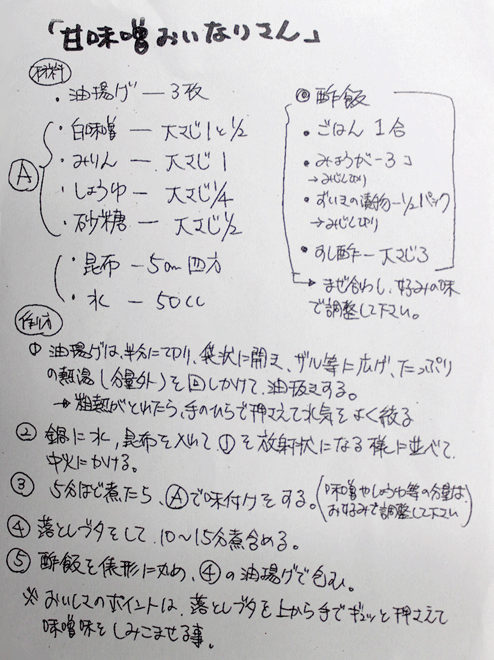 「甘味噌おいなりさん」
材料
・油揚げ ― 3枚
A
・白味噌 ― 大さじ1と1/2
・みりん ― 大さじ1
・しょうゆ ― 大さじ1/4
・砂糖 ― 大さじ1/2
・昆布 ― 5cm四方
・水 ― 50cc
◎酢飯
・ごはん 1合
・みょうが ― 3コ
→みじん切り
・ずいきの漬物 ― 1/2パック
→みじん切り
・すし酢 ― 大さじ3
→まぜ合わし、好みの味
で調整して下さい。
作り方
① 油揚げは、半分に切り、袋状に開き、ザル等に広げ、たっぷり
の熱湯(分量外)を回しかけて、油抜きする。
→粗熱がとれたら、手のひらで押さえて水気をよく絞る
② 鍋に水、昆布を入れて、①を放射状になる様に並べて、
中火にかける。
③ 5分ほど煮たら、Ⓐで味付けをする。(味噌やしょうゆ等の分量は、
お好みで調整して下さい)
④ 落としブタをして、10〜15分煮含める。
⑤ 酢飯を俵形に丸め、④の油揚げで包む。
※おいしさのポイントは、落としブタを上から手でギュッと押さえて
味噌味をしみこませる事。